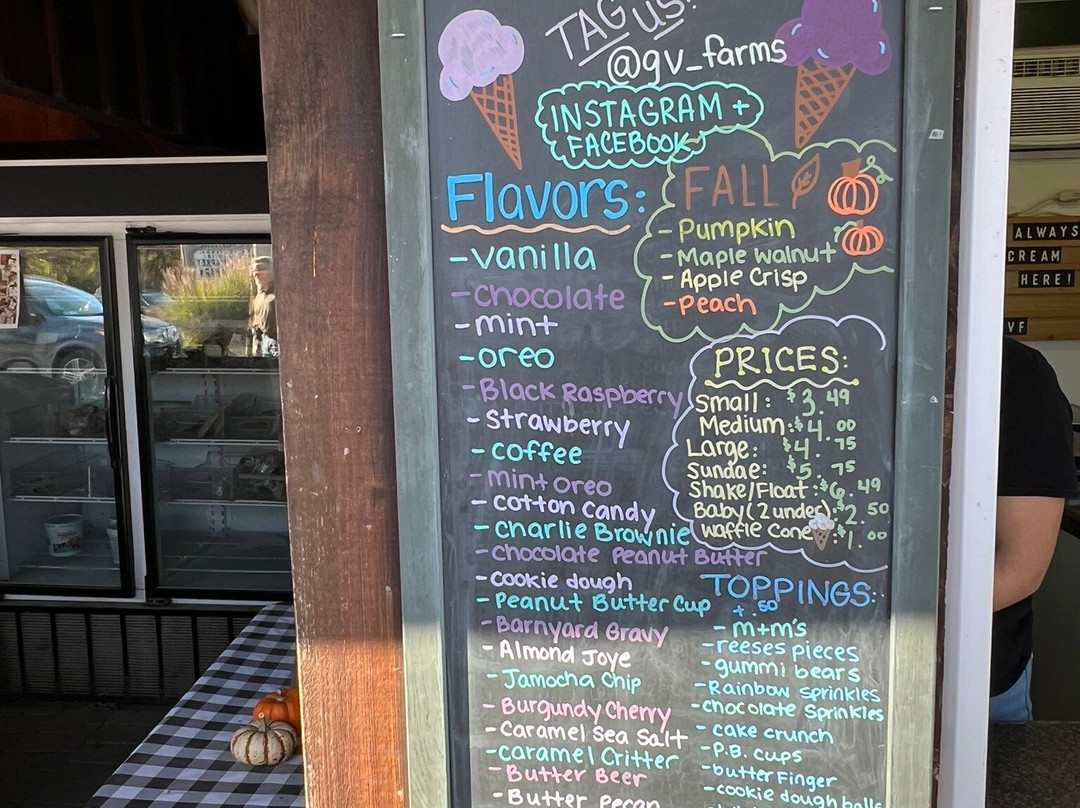 TAG us!
@gv_farms
INSTAGRAM +
FACEBOOK
Flavors:
- vanilla
- chocolate
- mint
- oreo
- Black Raspberry
- Strawberry
- coffee
- mint oreo
- cotton candy
- Charlie Brownie
- chocolate Peanut Butter
- cookie dough
- Peanut Butter Cup
- Barnyard Gravy
- Almond Joye
- Jamocha Chip
- Burgundy Cherry
- Caramel Sea Salt
- caramel Critter
- Butter Beer
- Butter Pecan
FALL
- Pumpkin
- Maple Walnut
- Apple Crisp
- Peach
PRICES:
Small: $3.49
Medium: $4.00
Large: $4.75
Sundae: $5.75
Shake/Float: $6.49
Baby (2 under): $2.50
Waffle Cone: $1.00
TOPPINGS:
+ .50
- m+m's
- reeses pieces
- gummi bears
- Rainbow sprinkles
- chocolate Sprinkles
- cake crunch
- P.B. cups
- butter Finger
- cookie dough balls
ALWAYS
CREAM
HERE!
VF